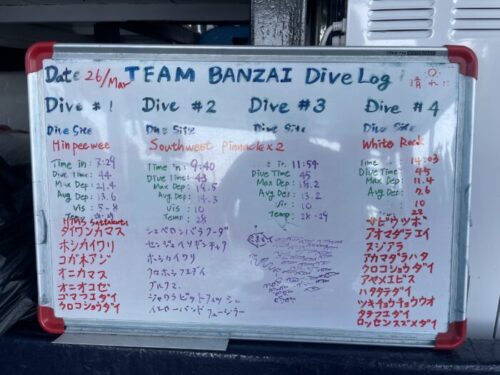 Date 26/Mar TEAM BANZAI Dive Log
Dive # 1
Dive Site
Hin pee wee
Time in : 7:29
Dive Time : 44
Max Dep : 21.4
Avg Dep : 13.6
Vis : 5-8
HTMS Sattakut
タイワンカマス
ホシカイワリ
コガネアジ
オニカマス
オニオコゼ
ゴマフエダイ
クロコショウダイ
Dive # 2
Dive Site
Southwest Pinnacle x 2
Time in : 9:40
Dive Time : 43
Max Dep : 19.5
Avg Dep : 14.3
Vis : 10
Temp : 28
シェベロンバラクーダ
センジュイソギンチャク
ホシカイワリ
クロホシフエダイ
グルクマ
ジャウラビットフィッシュ
イエローバンドフュージラー
Dive # 3
Dive Site
11:54
Dive Time 45
Max Dep : 18.2
Avg Dep : 13.2
Vis : 10
Temp : 28-29
Dive # 4
Dive Site
White Rock
Time : 14:03
Dive Time : 45
Max Dep : 11.4
Avg Dep : 7.6
10
28
マビウツボ
アオマダラエイ
スジアラ
アカマダラハタ
クロコショウダイ
アヤメエビス
ハタタテダイ
ツキチョウチョウウオ
タテフエダイ
ロッセンスズメダイ